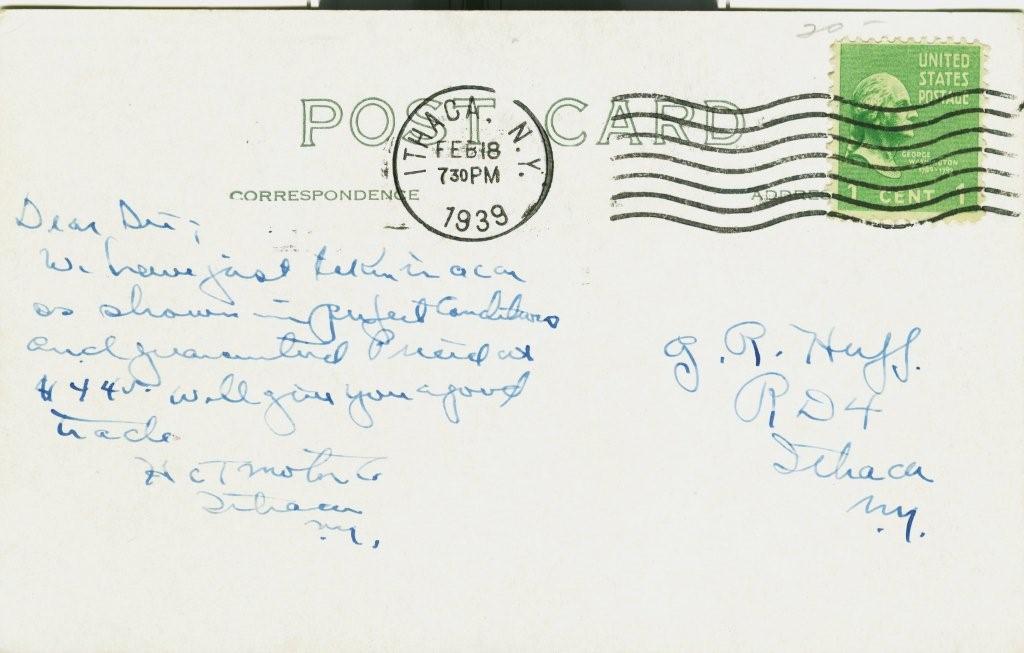 20-
POST CARD
ITHACA, N.Y.
FEB 18
730 PM
1939
UNITED
STATES
POSTAGE
GEORGE
WASHINGTON
1 CENT 1
CORRESPONDENCE
ADDRESS
Dear Sir;
We have just taken in a car
as shown in perfect Conditions
and guaranteed Priced at
$445. will give you a good
trade
H & T Motor Co
Ithaca
N.Y.
G. R. Huff.
R D 4
Ithaca
N.Y.